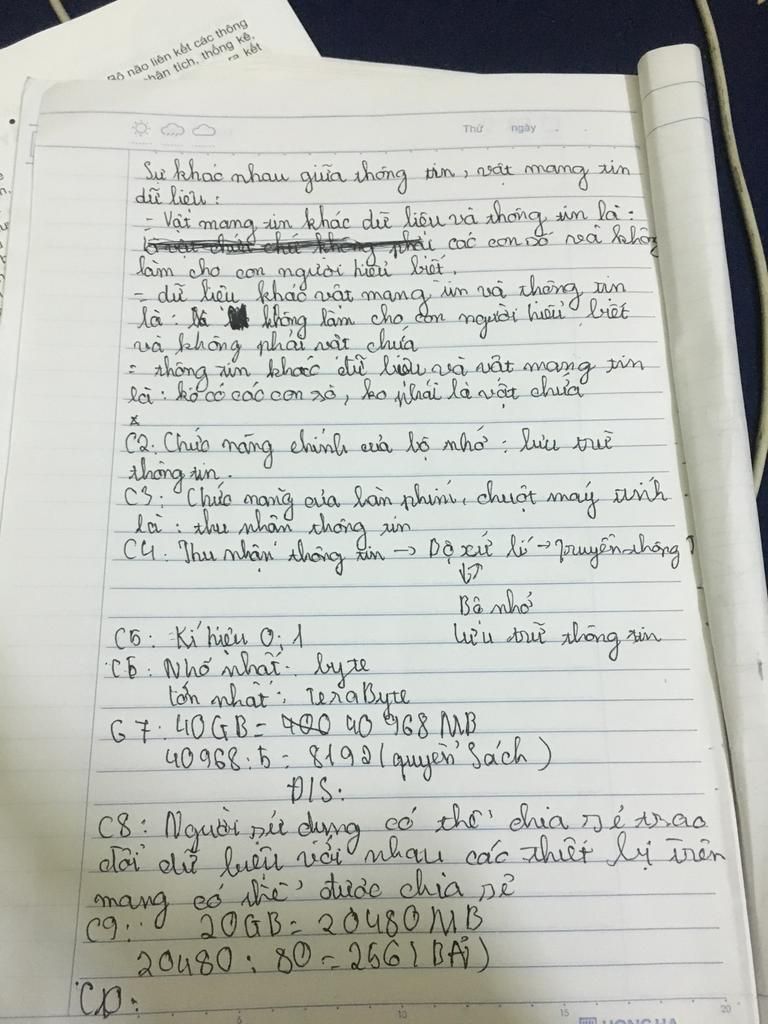 Bộ não liên kết các thông
phân tích, thống kê,
ra kết
Thứ ngày
Sự khác nhau giữa thông tin, vật mang tin
dữ liệu:
- Vật mang tin khác dữ liệu và thông tin là:
các con số và không
làm cho con người hiểu biết.
- dữ liệu khác vật mang tin và thông tin
là: không làm cho con người hiểu biết
và không phải vật chứa
- thông tin khác dữ liệu và vật mang tin
là: ko có các con số, ko phải là vật chứa
*
C2: Chức năng chính của bộ nhớ: lưu trữ
thông tin.
C3: Chức năng của bàn phím, chuột máy tính
là: thu nhận thông tin
C4: Thu nhận thông tin → Bộ xử lí → Truyền thông T
↓↑
Bộ nhớ
C5: Kí hiệu 0; 1 Lưu trữ thông tin
C6: Nhỏ nhất: byte
lớn nhất: TeraByte
C7: 40GB = 40 968 MB
40968:5 = 8192 (quyển sách)
Đ/S:
C8: Người sử dụng có thể chia sẻ trao
đổi dữ liệu với nhau các thiết bị trên
mạng có thể được chia sẻ
C9: 20GB = 20480 MB
20480 : 80 = 256 (BÀI)
C10:
5 10 15 20
HONG HA